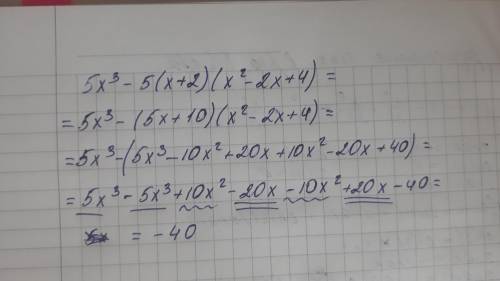 5x³ - 5(x+2)(x²-2x+4) =
= 5x³ - (5x+10)(x²-2x+4) =
= 5x³ - (5x³ - 10x² + 20x + 10x² - 20x + 40) =
= 5x³ - 5x³ + 10x² - 20x - 10x² + 20x - 40 =
= -40